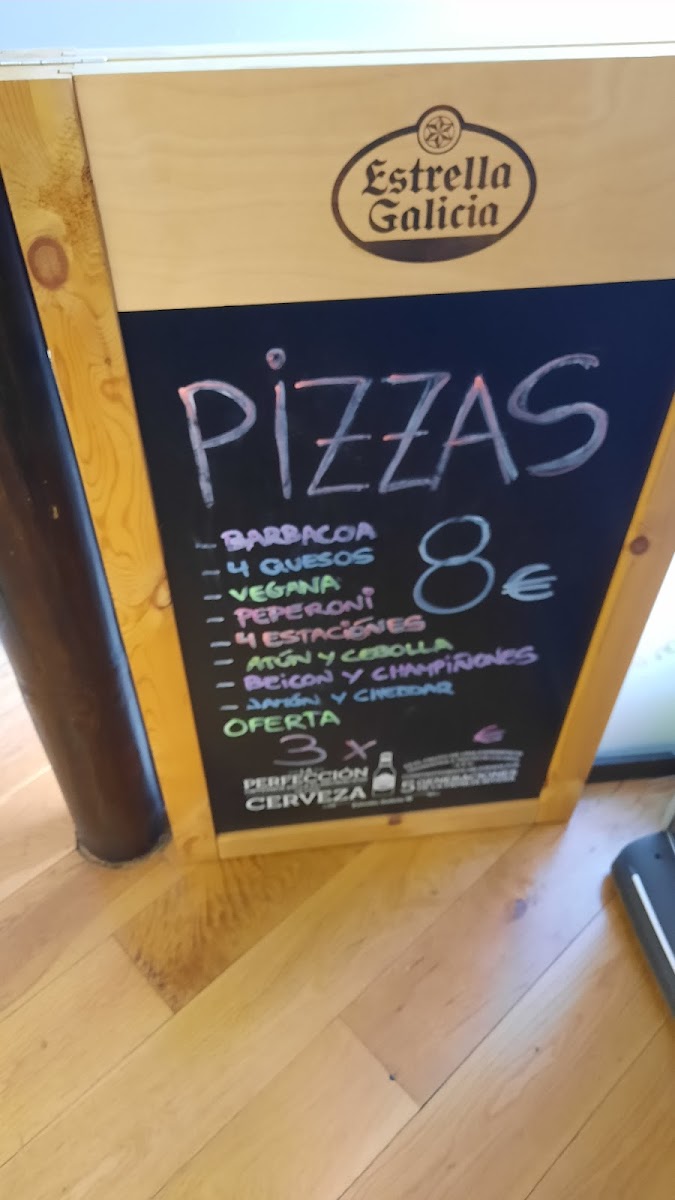 Estrella
Galicia
PiZZAS
- BARBACOA
- 4 QUESOS
- VEGANA
- PEPERONi
- 4 ESTACiÓNES
- ATÚN Y CEBOLLA
- BEICON Y CHAMPIÑONES
- JAMÓN Y CHEDDAR
8€
OFERTA
3 x €
PERFECCIÓN
CERVEZA
5 GENERACIONES